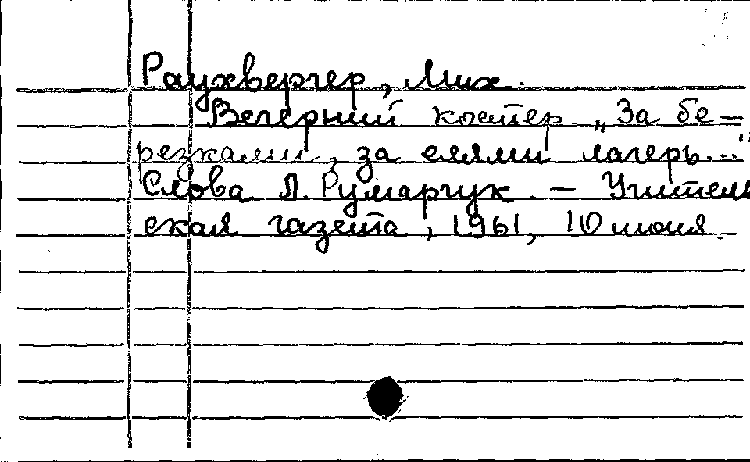 Раухвергер, Мих.
Вечерний костер „За бе-
резками, за елями лагерь..."
Слова Л. Румарчук. – Учитель
ская газета, 1961, 10 июня.